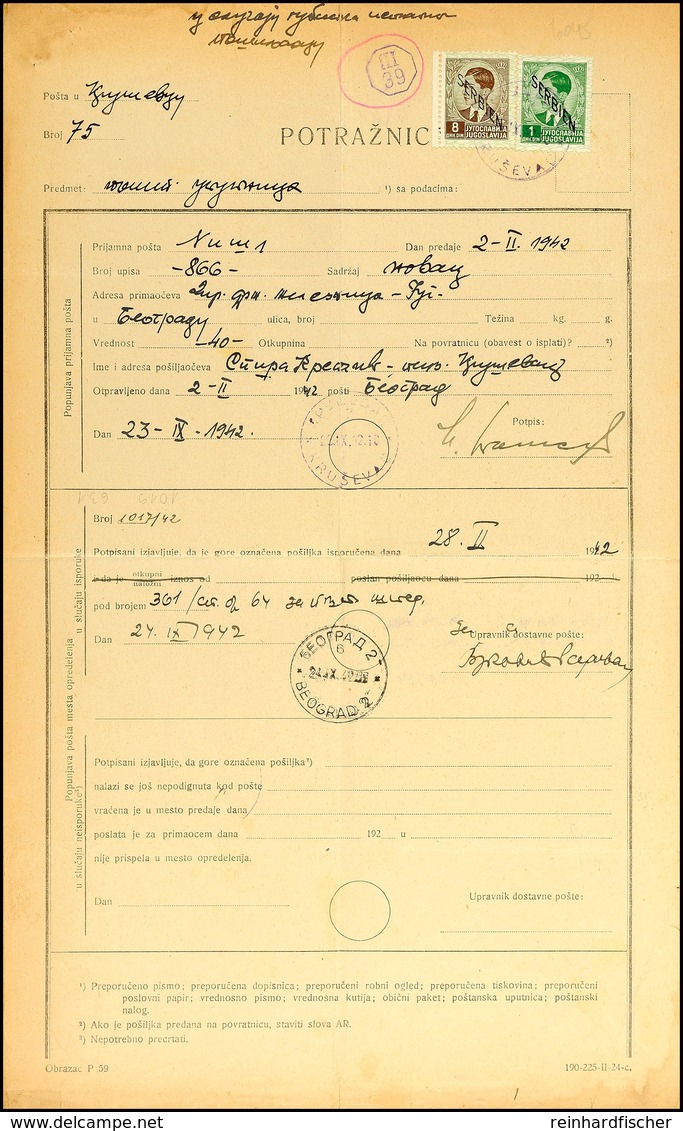 у случају губитка
III
39
SERBIEN
8
ДИН. DIN
ЈУГОСЛАВИЈА
JUGOSLAVIJA
SERBIEN
1
ДИН. DIN
ЈУГОСЛАВИЈА
JUGOSLAVIJA
KRUŠEVAC
Pošta u Крушевцу
Broj 75
POTRAŽNIC
Predmet: ¹) sa podacima:
Prijamna pošta Ниш 1 Dan predaje 2-II 1942
Broj upisa -866- Sadržaj новац
Adresa primaočeva
u Београду ulica, broj Težina kg. g.
Vrednost -40- Otkupnina Na povratnicu (obavest o isplati)? ²)
Ime i adresa pošiljaočeva Спира Крстић
Otpravljeno dana 2-II 1942 pošti Београд
Potpis:
Dan 23-IX-1942.
KRUŠEVAC
Popunjava prijamna pošta
Broj 1017/42
Potpisani izjavljuje, da je gore označena pošiljka isporučena dana 28. II 1942
i da je otkupni naložni iznos od poslan pošiljaocu dana 192
pod brojem 301/
Dan 24. IX 1942 Upravnik dostavne pošte:
БЕОГРАД 2
6
24.IX.42
BEOGRAD 2
Popunjava pošta mesta opredelenja
u slučaju isporuke
u slučaju neisporuke³)
Potpisani izjavljuje, da gore označena pošiljka¹)
nalazi se još nepodignuta kod pošte
vraćena je u mesto predaje dana
poslata je za primaocem dana 192 u
nije prispela u mesto opredelenja.
Dan Upravnik dostavne pošte:
¹) Preporučeno pismo; preporučena dopisnica; preporučeni robni ogled; preporučena tiskovina; preporučeni
poslovni papir; vrednosno pismo; vrednosna kutija; obični paket; poštanska uputnica; poštanski
nalog.
²) Ako je pošiljka predana na povratnicu, staviti slova AR.
³) Nepotrebno precrtati.
Obrazac P 59 190-225-II-24-c.
reinhardfischer